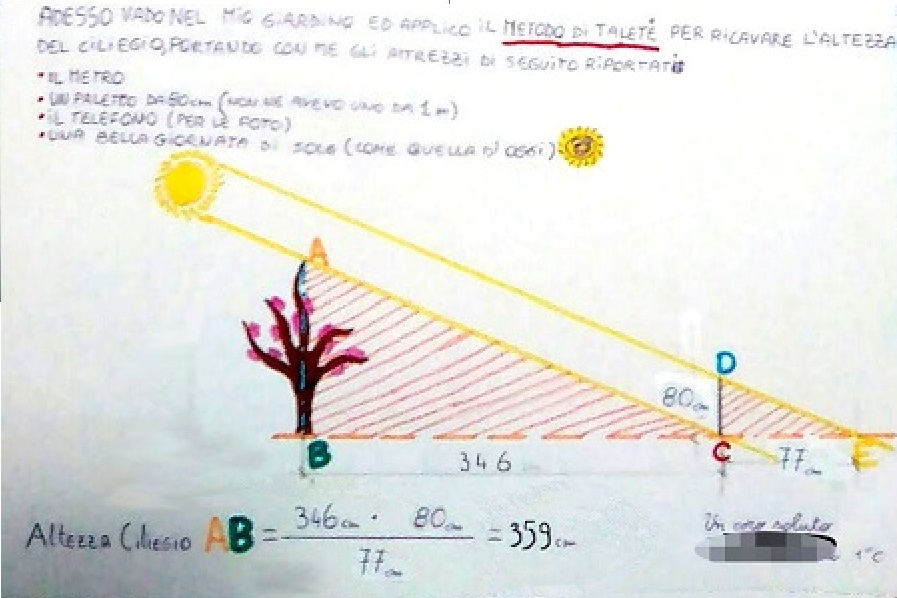 ADESSO VADO NEL MIO GIARDINO ED APPLICO IL METODO DI TALETE PER RICAVARE L'ALTEZZA
DEL CILIEGIO, PORTANDO CON ME GLI ATTREZZI DI SEGUITO RIPORTATI
• IL METRO
• UN PALETTO DA 80cm (NON NE AVEVO UNO DA 1 m)
• IL TELEFONO (PER LE FOTO)
• UNA BELLA GIORNATA DI SOLE (COME QUELLA D'OGGI)
A
D
80cm
B
346
C
77cm
E
Altezza Ciliegio AB = 346cm · 80cm / 77cm = 359cm
Un caro saluto
1°C